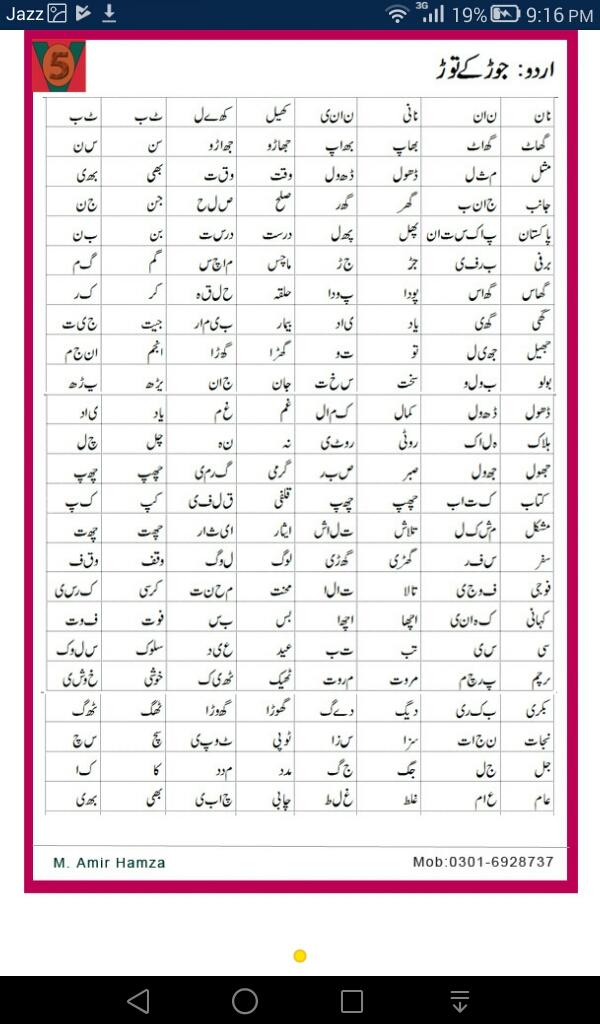 Jazz 3G 19% 9:16 PM
5
اردو: جوڑ کے توڑ
نان ن ا ن نانی ن ا ن ی کھیل کھ ے ل ٹ ب ٹ ب
گھاٹ گھ ا ٹ بھاپ بھ ا پ جھاڑو جھ ا ڑ و سن س ن
مثل م ث ل ڈھول ڈھ و ل وقت و ق ت بھی بھ ی
جانب ج ا ن ب گھر گھ ر صلح ص ل ح جن ج ن
پاکستان پ ا ک س ت ا ن پھل پھ ل درست د ر س ت بن ب ن
برفی ب ر ف ی جڑ ج ڑ ماچس م ا چ س گم گ م
گھاس گھ ا س پودا پ و د ا حلقہ ح ل ق ہ کر ک ر
گھی گھ ی یاد ی ا د بیمار ب ی م ا ر جیت ج ی ت
جھیل جھ ی ل تو ت و گھڑا گھ ڑ ا انجم ا ن ج م
بولو ب و ل و سخت س خ ت جان ج ا ن پڑھ پ ڑھ
ڈھول ڈھ و ل کمال ک م ا ل غم غ م یاد ی ا د
ہلاک ہ ل ا ک روٹی ر و ٹ ی نہ ن ہ چل چ ل
جھول جھ و ل صبر ص ب ر گرمی گ ر م ی چھپ چھ پ
کتاب ک ت ا ب چھپ چھ پ قلفی ق ل ف ی کپ ک پ
مشکل م ش ک ل تلاش ت ل ا ش ایثار ا ی ث ا ر چھت چھ ت
سفر س ف ر گھڑی گھ ڑ ی لوگ ل و گ وقف و ق ف
فوجی ف و ج ی تالا ت ا ل ا محنت م ح ن ت کرسی ک ر س ی
کہانی ک ہ ا ن ی اچھا ا چھ ا بس ب س فوت ف و ت
سی س ی تب ت ب عید ع ی د سلوک س ل و ک
پرچم پ ر چ م مروت م ر و ت ٹھیک ٹھ ی ک خوشی خ و ش ی
بکری ب ک ر ی دیگ د ے گ گھوڑا گھ و ڑ ا ٹھگ ٹھ گ
نجات ن ج ا ت سزا س ز ا ٹوپی ٹ و پ ی سچ س چ
جل ج ل جگ ج گ مدد م د د کا ک ا
عام ع ا م غلط غ ل ط چابی چ ا ب ی بھی بھ ی
M. Amir Hamza Mob:0301-6928737